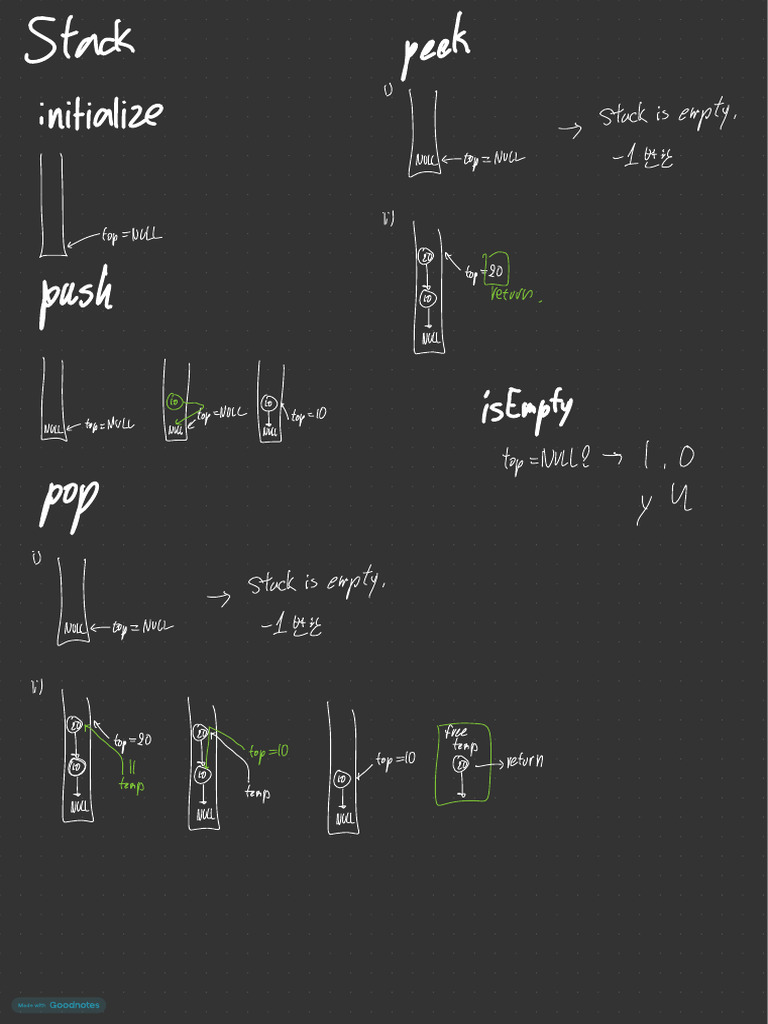 Stack
initialize
top = NULL
push
NULL
top = NULL
10
NULL
top = NULL
10
NULL
top = 10
pop
i)
NULL
top = NULL
→ Stack is empty.
-1 반환
ii)
20
10
NULL
top = 20
||
temp
20
10
NULL
top = 10
temp
10
NULL
top = 10
free
temp
20
return
peek
i)
NULL
top = NULL
→ Stack is empty.
-1 반환
ii)
20
10
NULL
top = 20
return.
isEmpty
top = NULL? → 1, 0
y n
Made with Goodnotes